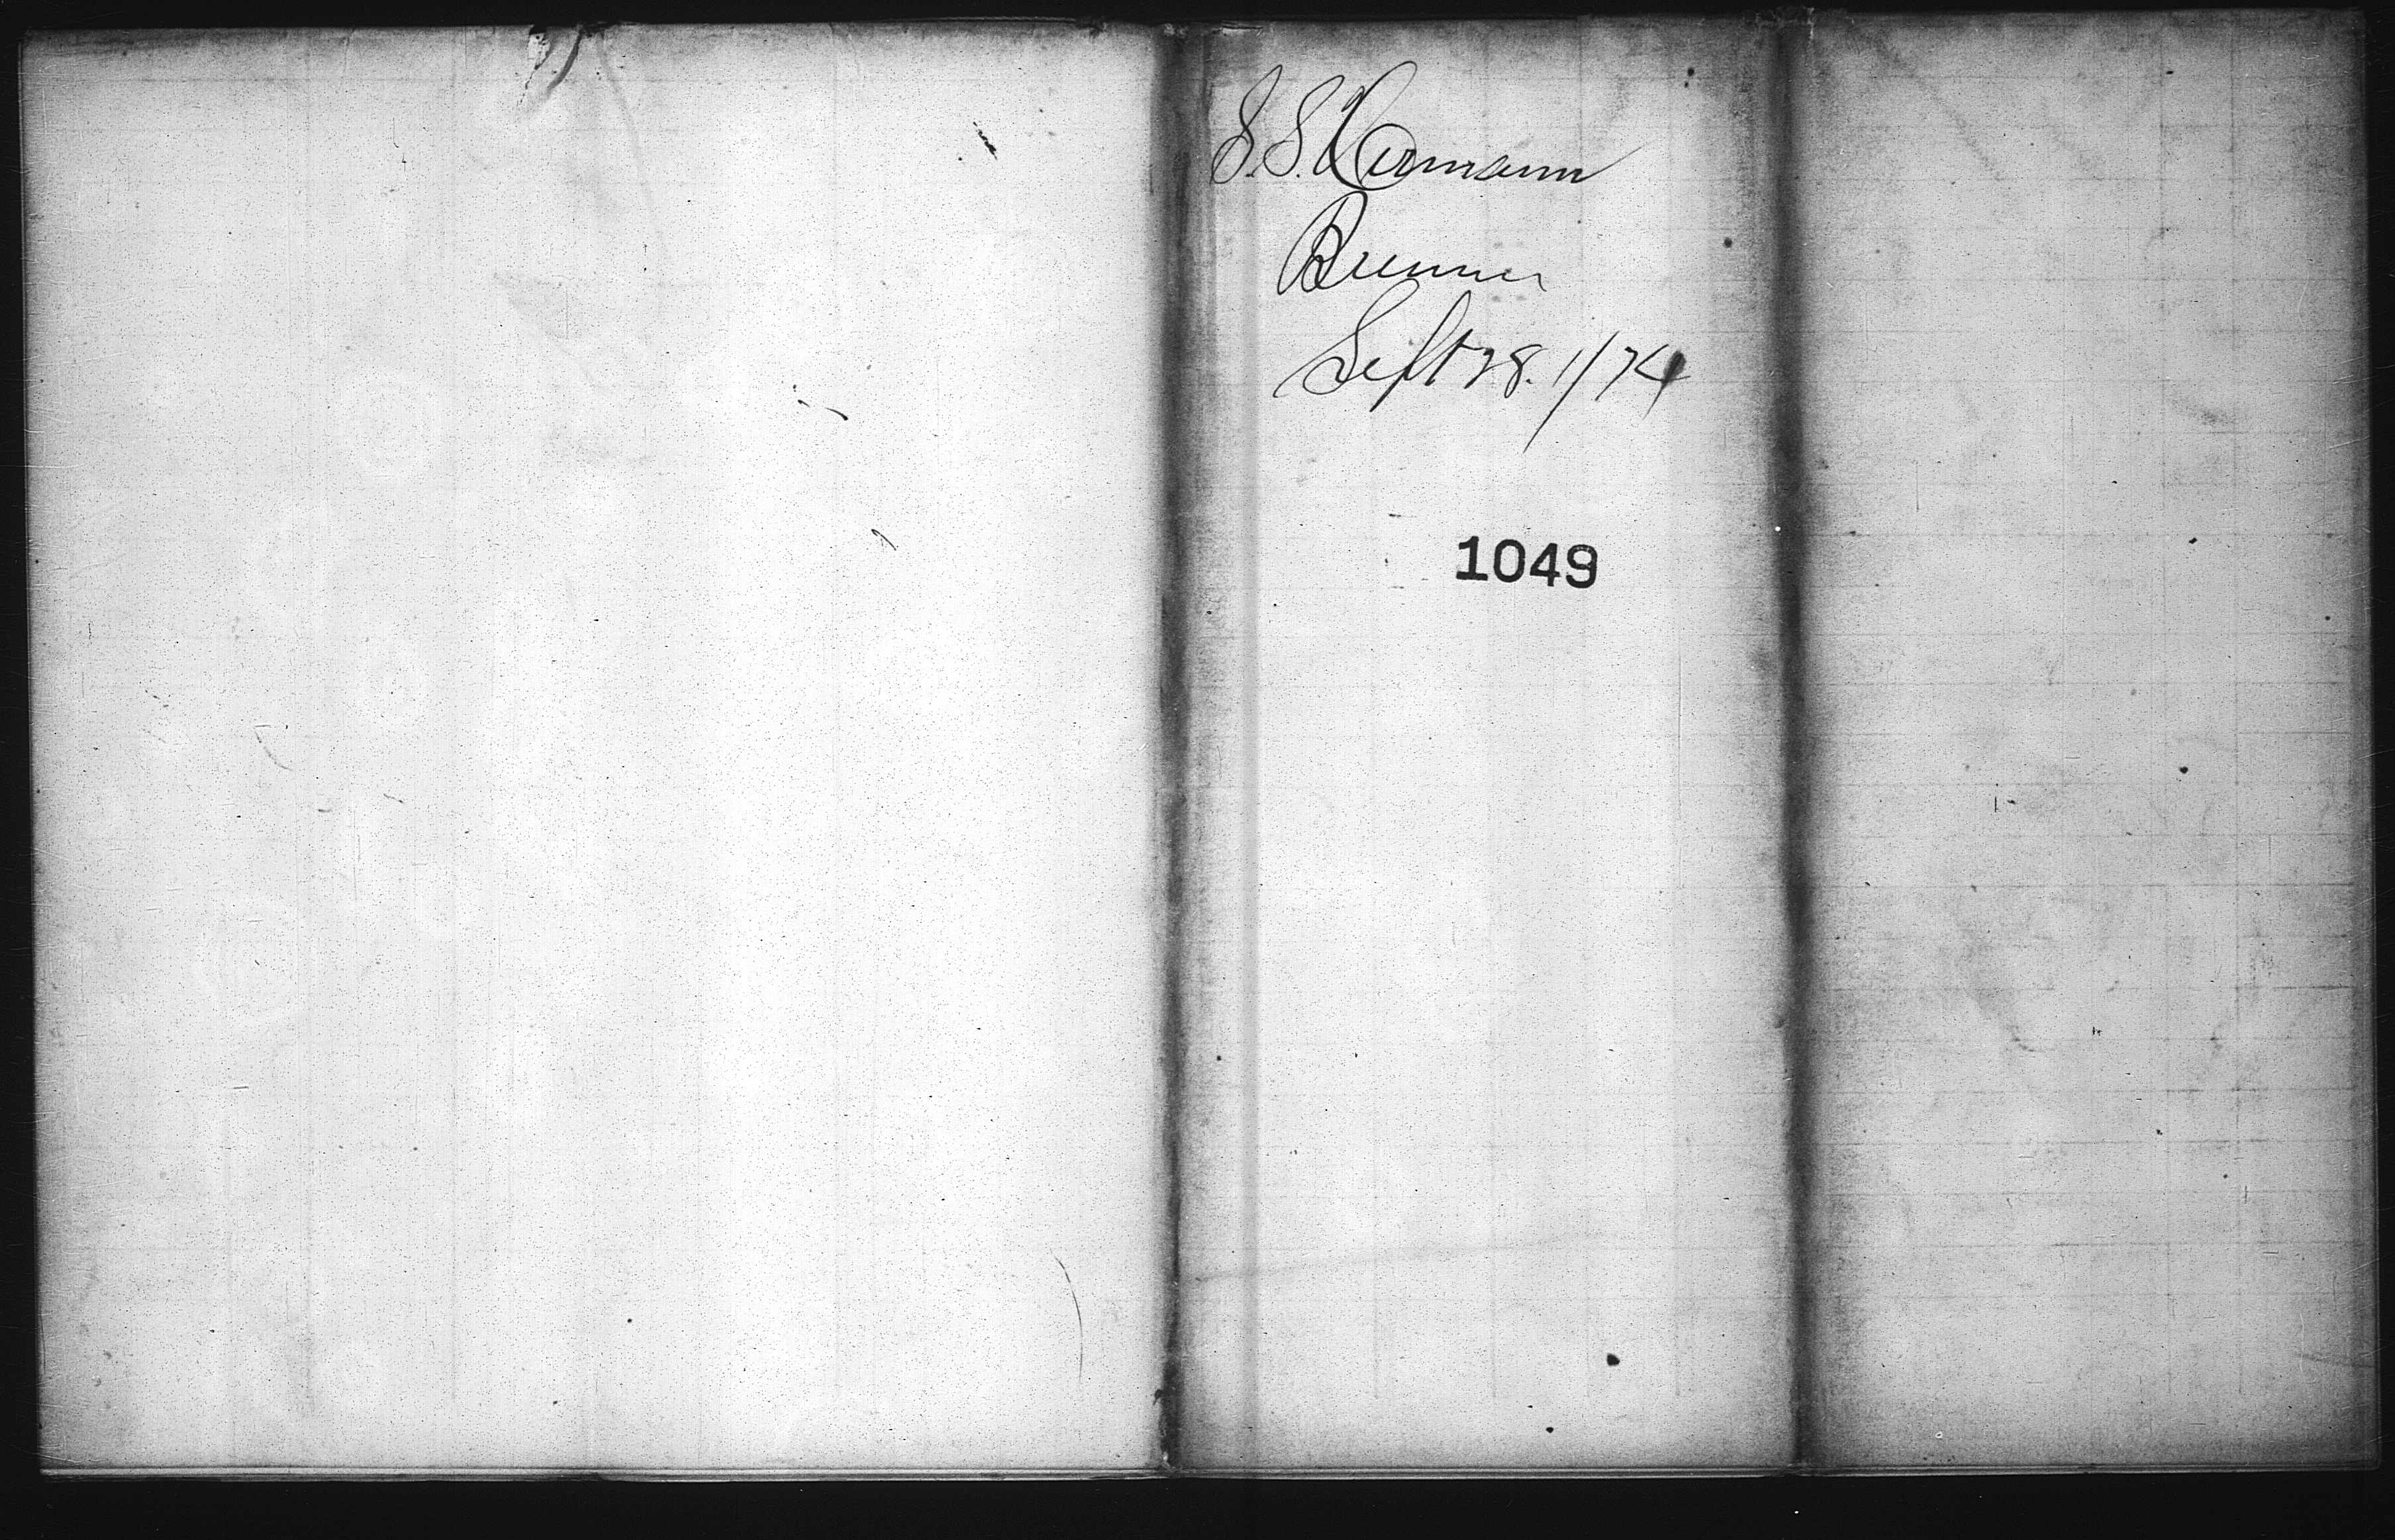 S. S. Hermann
Brenner
Sept 28. 1/74
1049